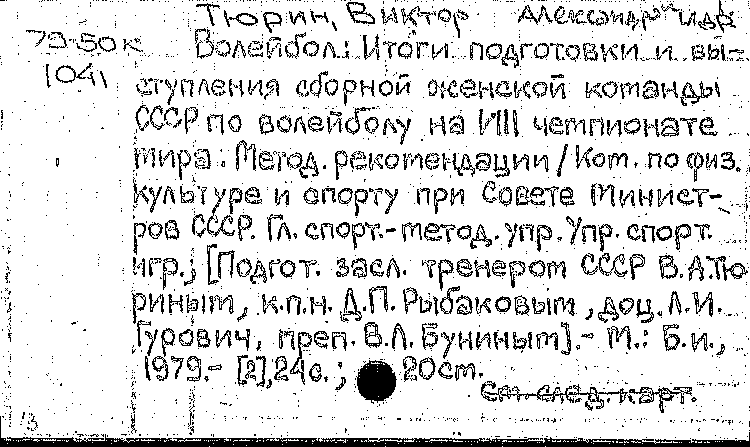 Тюрин, Виктор Александр. и др.
79-50к Волейбол: Итоги подготовки и вы-
1041 ступления сборной женской команды
СССР по волейболу на VIII чемпионате
мира: Метод. рекомендации / Ком. по физ.
культуре и спорту при Совете Минист-
ров СССР. Гл. спорт.-метод. упр. Упр. спорт.
игр.; [Подгот. засл. тренером СССР В.А.Тю
риным, к.п.н. Д.П. Рыбаковым, доц. Л.И.
Гурович, преп. В.Л. Буниным].- М.: Б.и.,
1979.- [2],24с.; 20см.
См. след. карт.